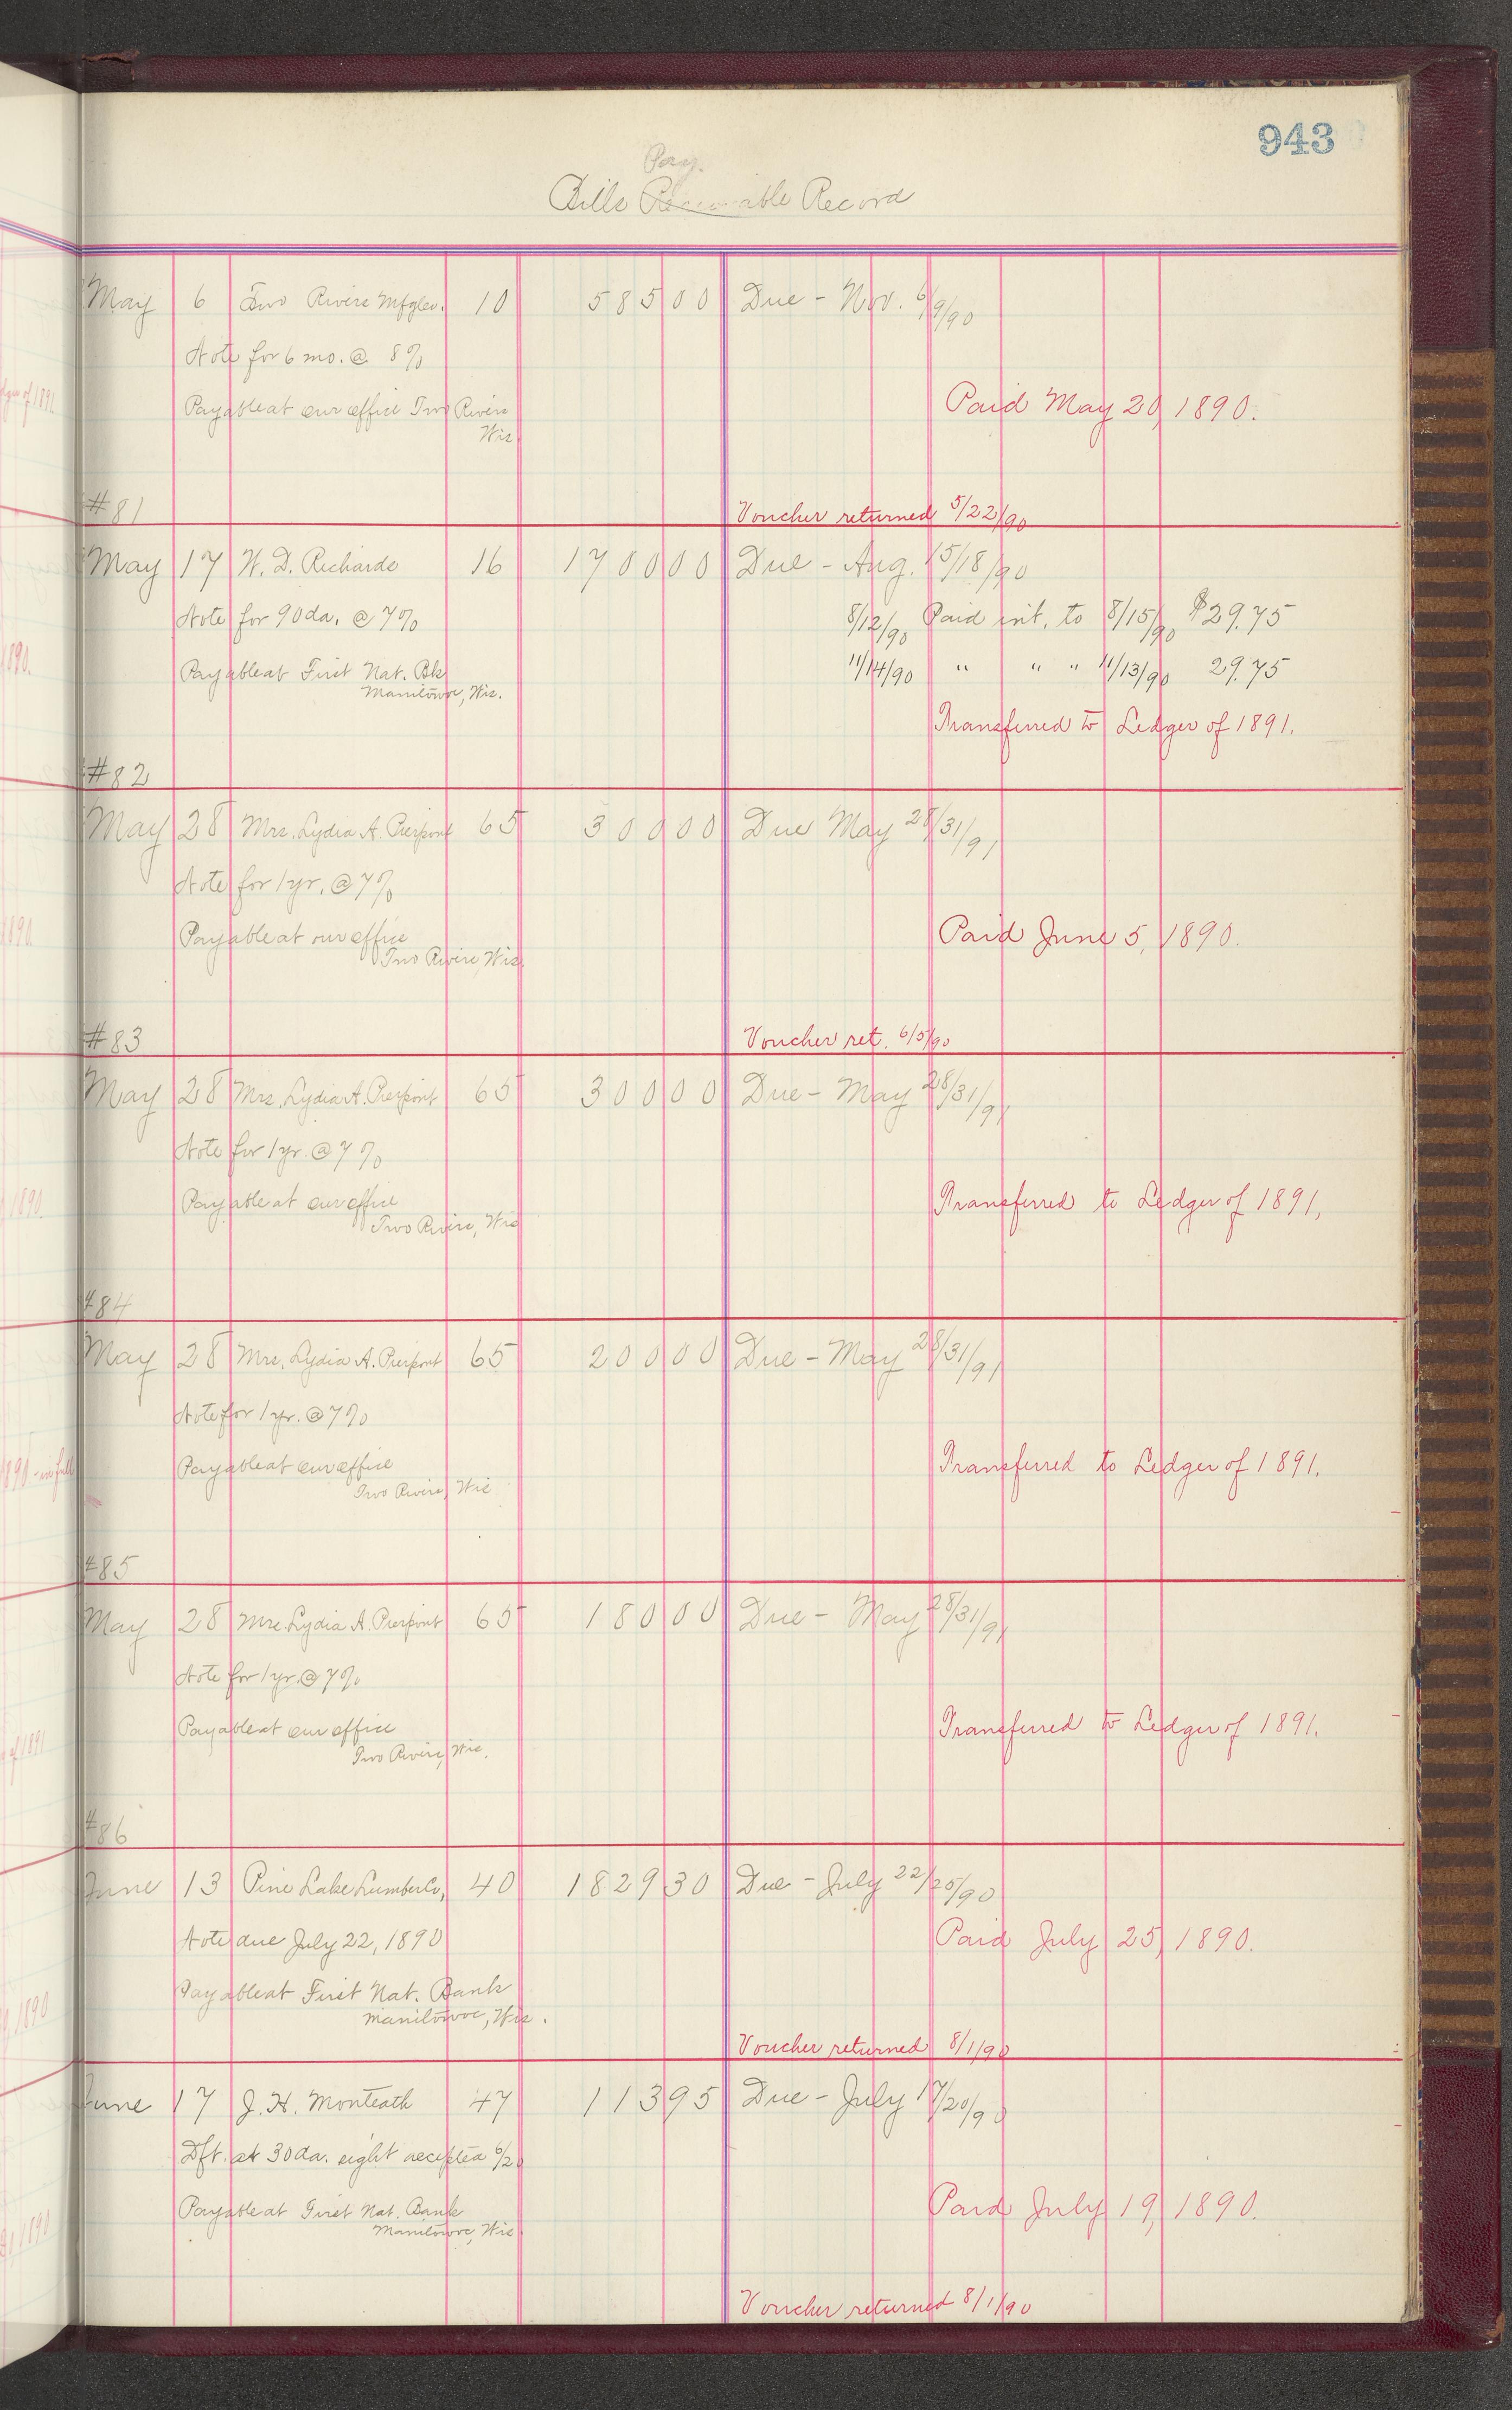 943
Pay.
Bills Receivable Record
May 6 Two Rivers Mfg Co. 10 585 00 Due - Nov. 6/9/90
Note for 6 mo. @ 8%
Payable at our office Two Rivers
Wis.
Paid May 20, 1890.
#81
Voucher returned 5/22/90
May 17 W. D. Richards 16 1700 00 Due - Aug. 15/18/90
Note for 90 da. @ 7%
8/12/90 Paid int. to 8/15/90 $29.75
Payable at First Nat. Bk
Manitowoc, Wis.
11/14/90 " " " 11/13/90 29.75
Transferred to Ledger of 1891.
#82
May 28 Mrs. Lydia A. Pierpont 65 300 00 Due May 28/31/91
Note for 1 yr. @ 7%
Payable at our office
Two Rivers, Wis.
Paid June 5, 1890.
#83
Voucher ret. 6/5/90
May 28 Mrs. Lydia A. Pierpont 65 300 00 Due - May 28/31/91
Note for 1 yr. @ 7%
Payable at our office
Two Rivers, Wis
Transferred to Ledger of 1891,
#84
May 28 Mrs. Lydia A. Pierpont 65 200 00 Due - May 28/31/91
Note for 1 yr. @ 7%
Payable at our office
Two Rivers, Wis
Transferred to Ledger of 1891.
#85
May 28 Mrs. Lydia A. Pierpont 65 180 00 Due - May 28/31/91
Note for 1 yr. @ 7%
Payable at our office
Two Rivers, Wis.
Transferred to Ledger of 1891.
#86
June 13 Pine Lake Lumber Co, 40 1829 30 Due - July 22/25/90
Note due July 22, 1890
Paid July 25, 1890.
Payable at First Nat. Bank
Manitowoc, Wis.
Voucher returned 8/1/90
June 17 J. H. Monteath 47 113 95 Due - July 17/20/90
Dft. at 30 da. sight accepted
Payable at First Nat. Bank
Manitowoc, Wis
Paid July 19, 1890.
Voucher returned 8/1/90